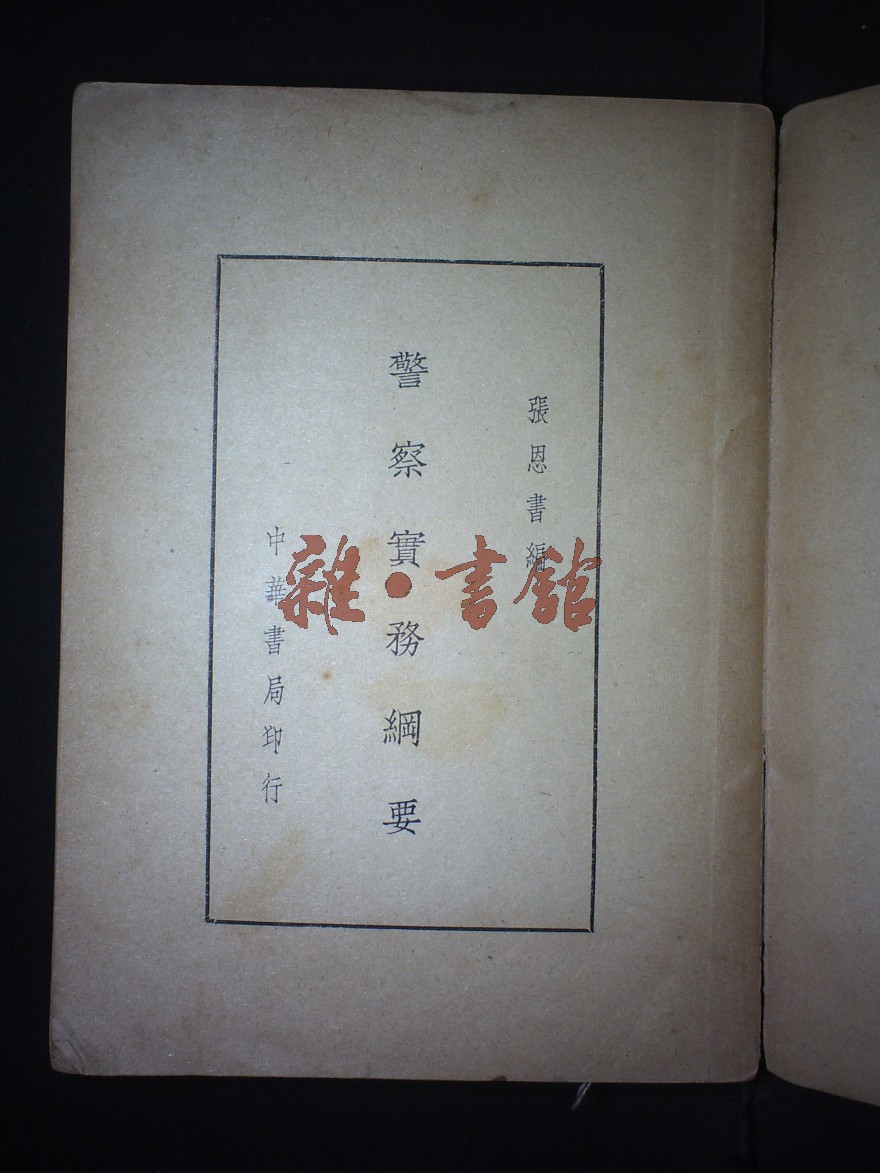 張恩書編
警察實務綱要
中華書局印行
雜·書館